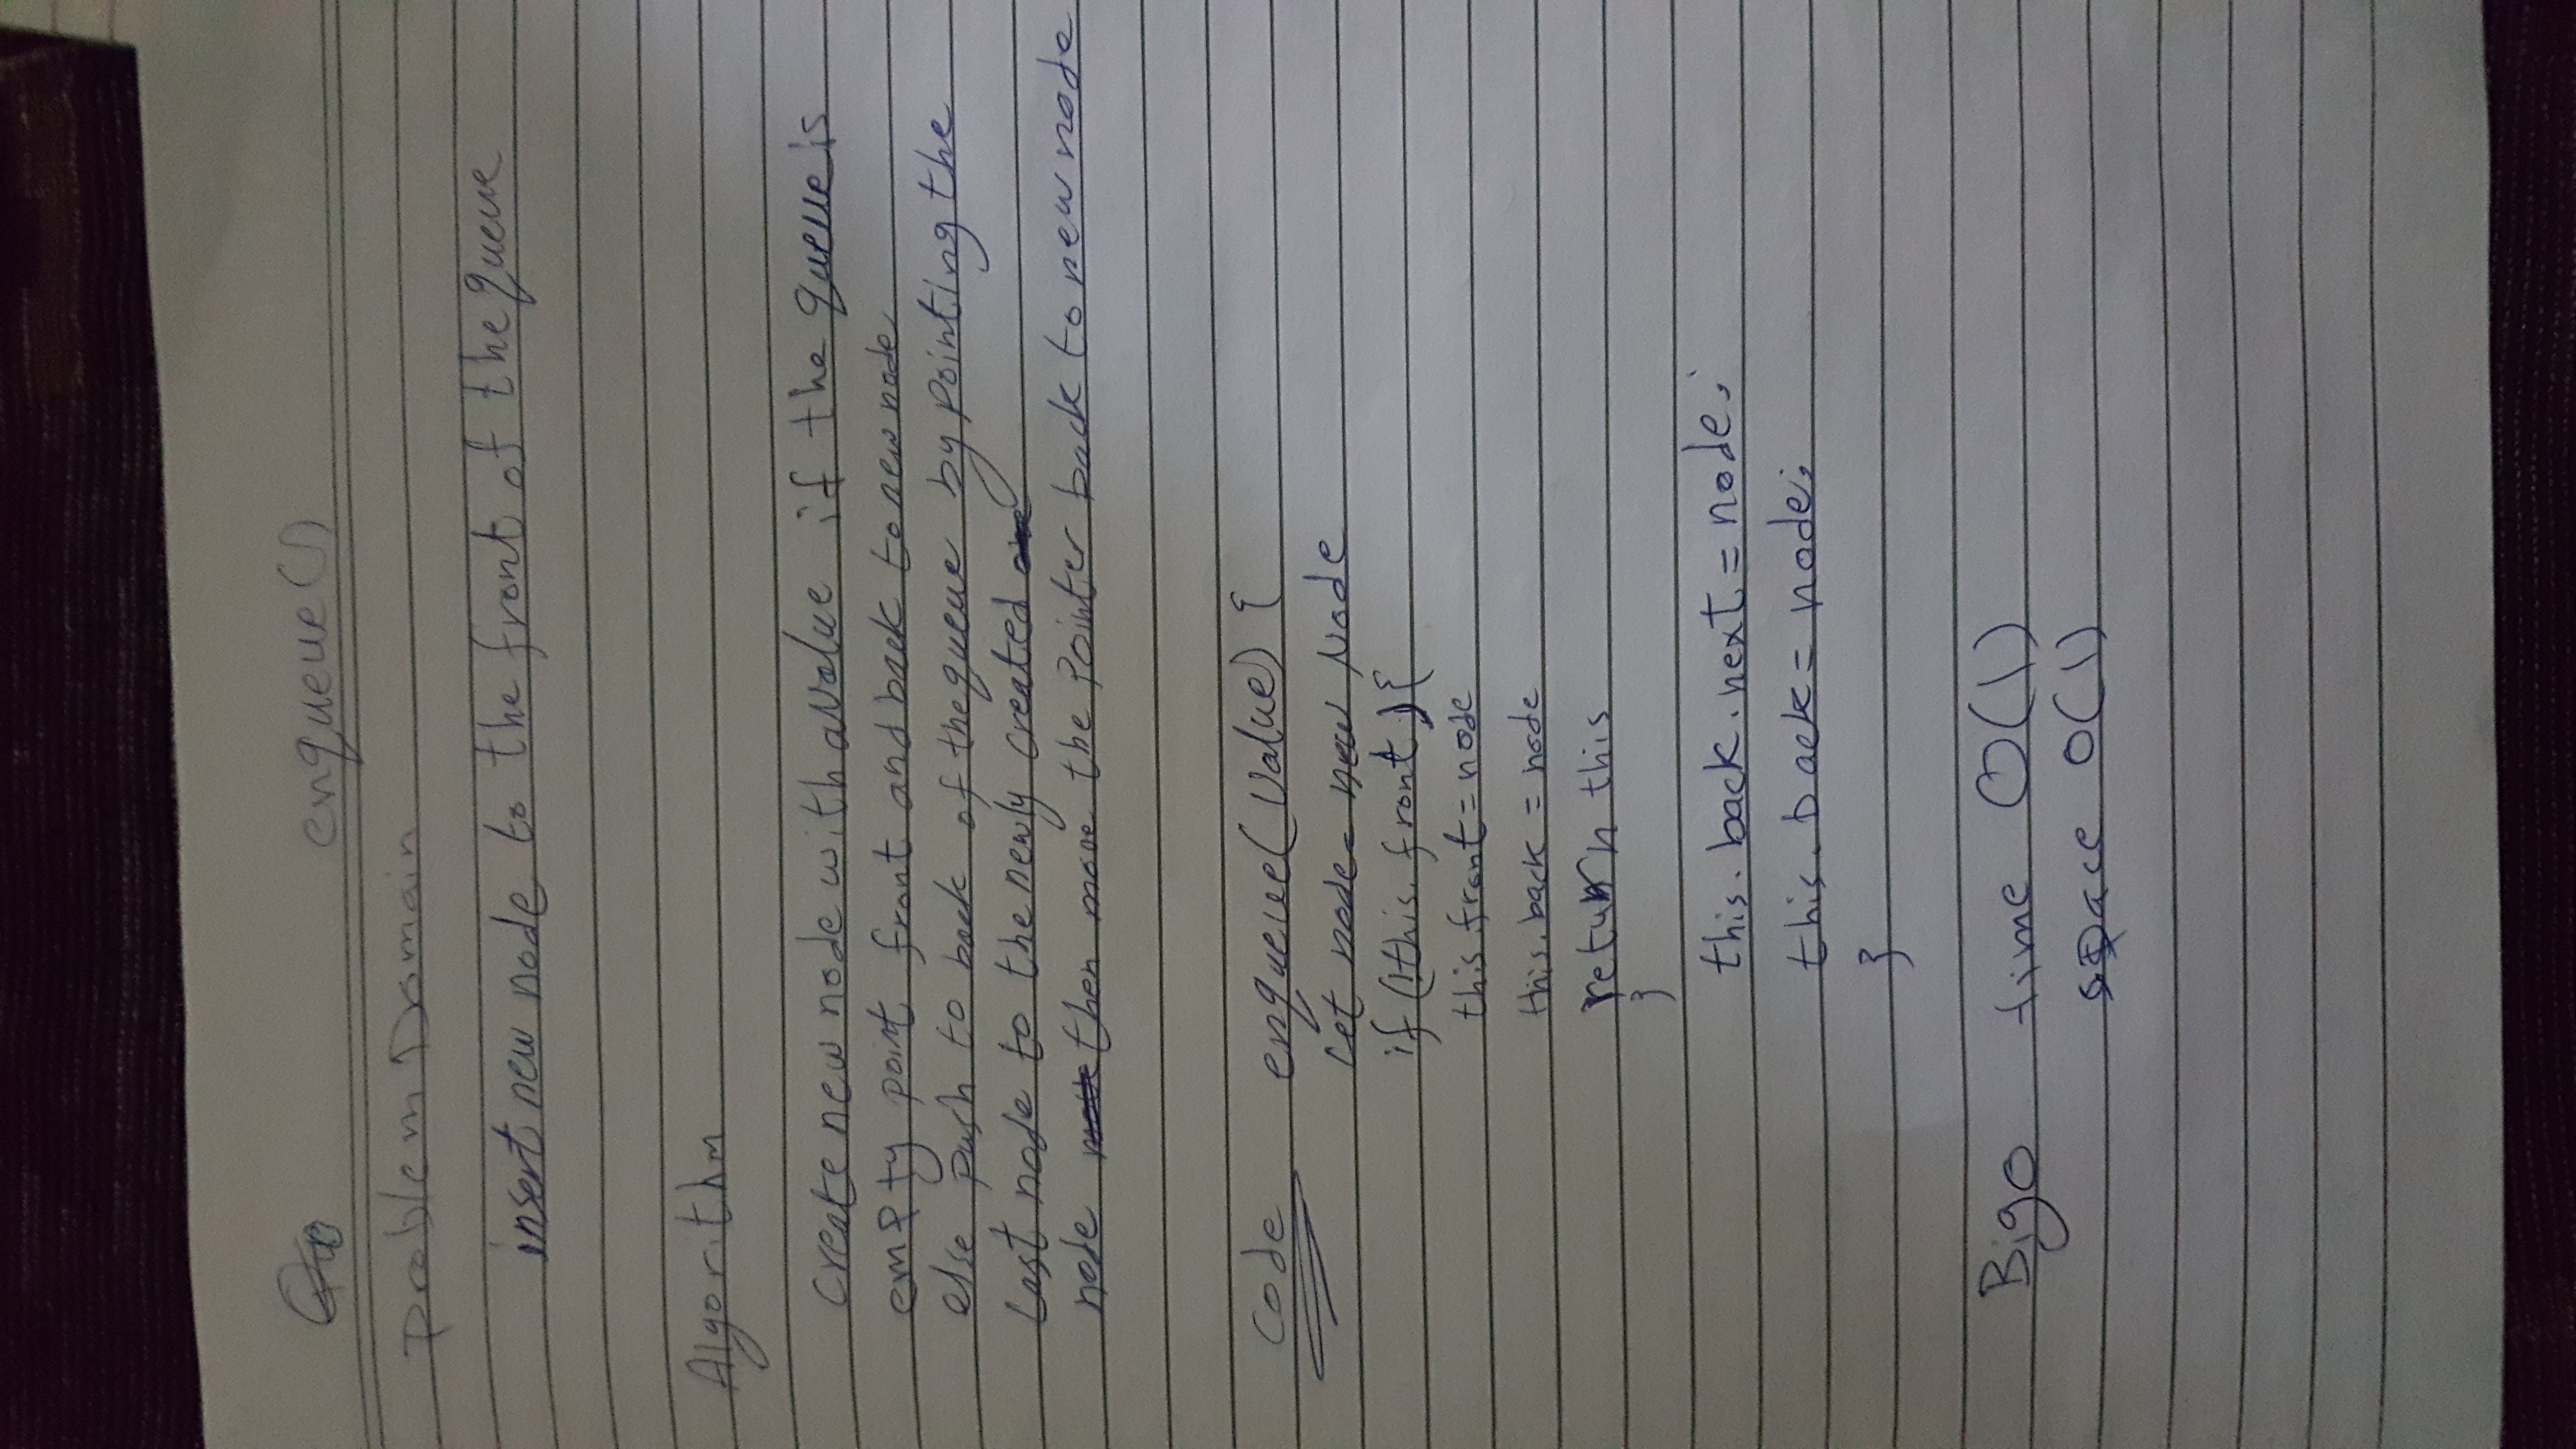 enqueue()
Problem Domain
insert new node to the front of the queue
Algorithm
create new node with a value if the queue is
empty point front and back to new node
else push to back of the queue by pointing the
Last node to the newly created
node then move the pointer back to new node
Code enqueue(value) {
Let node = new Node
if (!this.front) {
this.front = node
this.back = node
return this
}
this.back.next = node;
this.back = node;
}
Bigo time O(1)
space O(1)